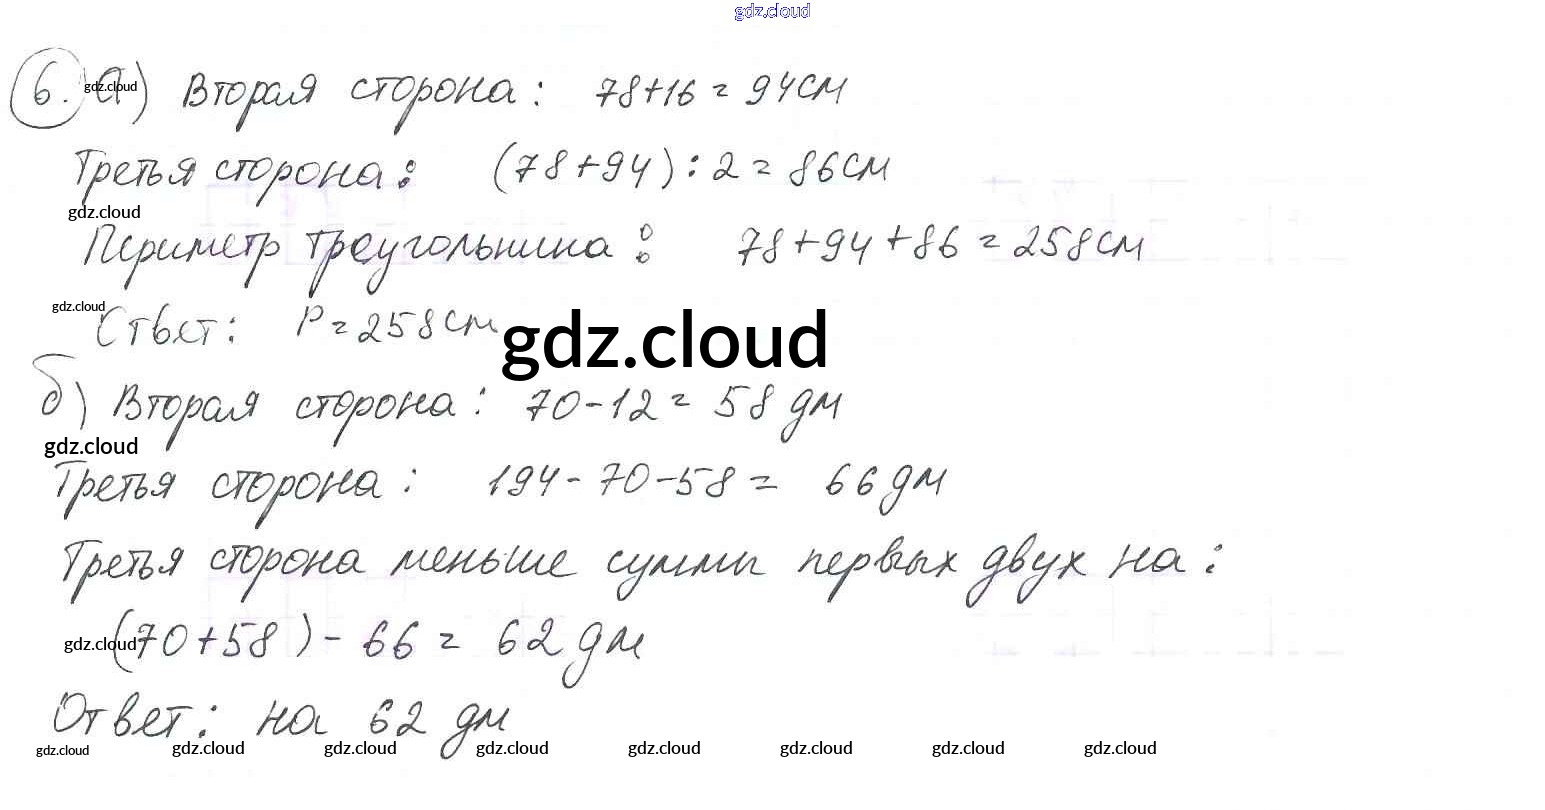 gdz.cloud
6. а) Вторая сторона: 78+16=94см
gdz.cloud
Третья сторона: (78+94):2=86см
gdz.cloud
Периметр треугольника: 78+94+86=258см
gdz.cloud
Ответ: P=258см
gdz.cloud
б) Вторая сторона: 70-12=58 дм
gdz.cloud
Третья сторона: 194-70-58= 66 дм
Третья сторона меньше суммы первых двух на:
gdz.cloud
(70+58)-66= 62 дм
Ответ: на 62 дм
gdz.cloud gdz.cloud gdz.cloud gdz.cloud gdz.cloud gdz.cloud gdz.cloud gdz.cloud